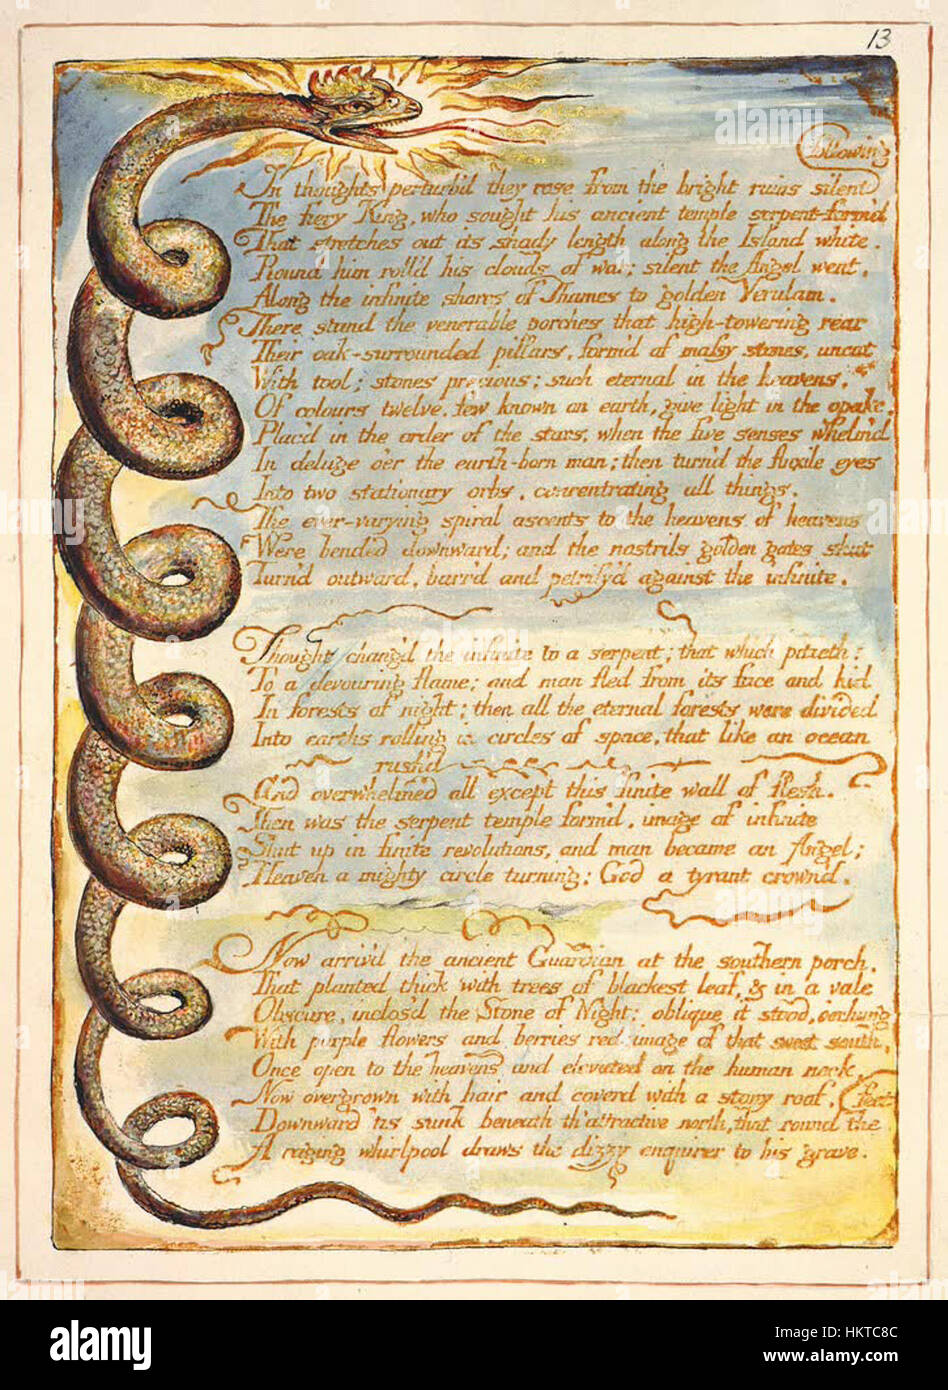 13
following
In thoughts perturb'd they rose from the bright ruins silent
The fiery King, who sought his ancient temple serpent-form'd
That stretches out its shady length along the Island white.
Round him roll'd his clouds of war; silent the Angel went,
Along the infinite shores of Thames to golden Verulam.
There stand the venerable porches that high-towering rear
Their oak-surrounded pillars, form'd of massy stones, uncut
With tool; stones precious; such eternal in the heavens,
Of colours twelve, few known on earth, give light in the opake,
Plac'd in the order of the stars, when the five senses whelm'd
In deluge o'er the earth-born man; then turn'd the fluxile eyes
Into two stationary orbs, concentrating all things.
The ever-varying spiral ascents to the heavens of heavens
Were bended downward; and the nostrils golden gates shut
Turn'd outward, barr'd and petrify'd against the infinite.
Thought chang'd the infinite to a serpent; that which pitieth:
To a devouring flame; and man fled from its face and hid
In forests of night; then all the eternal forests were divided
Into earths rolling in circles of space, that like an ocean
rush'd
And overwhelmed all except this finite wall of flesh.
Then was the serpent temple form'd, image of infinite
Shut up in finite revolutions, and man became an Angel;
Heaven a mighty circle turning; God a tyrant crown'd.
Now arriv'd the ancient Guardian at the southern porch,
That planted thick with trees of blackest leaf, & in a vale
Obscure, inclos'd the Stone of Night; oblique it stood, o'erhung
With purple flowers and berries red; image of that sweet south,
Once open to the heavens and elevated on the human neck,
Now overgrown with hair and coverd with a stony roof,
Downward 'tis sunk beneath th' attractive north, that round the feet
A raging whirlpool draws the dizzy enquirer to his grave.
alamy
Image ID: HKTC8C
www.alamy.com